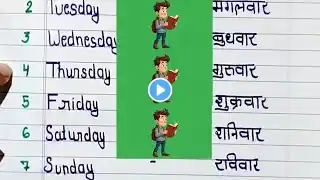 2 Tuesday मंगलवार
3 Wednesday बुधवार
4 Thursday गुरुवार
5 Friday शुक्रवार
6 Saturday शनिवार
7 Sunday रविवार